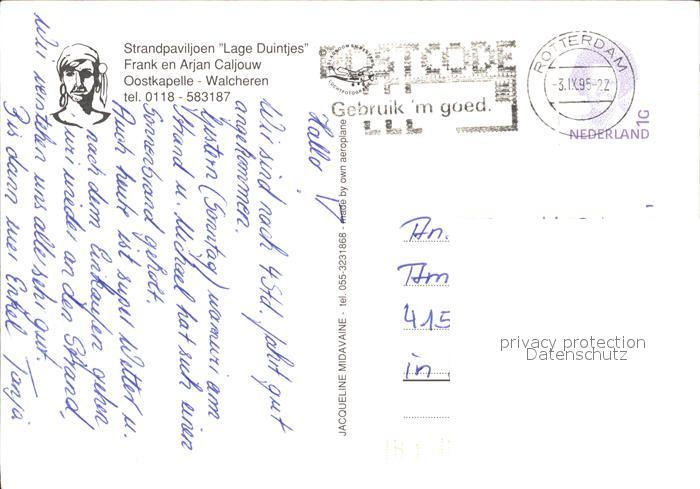 Strandpaviljoen "Lage Duintjes"
Frank en Arjan Caljouw
Oostkapelle - Walcheren
tel. 0118 - 583187
POSTCODE
Gebruik 'm goed.
ROTTERDAM
-3.IX.95-22
NEDERLAND
1G
Hallo
Wir sind nach 4 Std. fahrt gut
angekommen.
Gestern (Sonntag) waren wir am
Strand u. Michael hat sich einen
Sonnenbrand geholt.
Auch heute ist super Wetter u.
nach dem Einkaufen gehen
wir wieder an den Strand,
Wir verstehen uns alle sehr gut.
Bis dann euer Enkel Tanja
JACQUELINE MIDAVAINE - tel. 055-3231868 - made by own aeroplane
An.
Am
415
in
privacy protection
Datenschutz